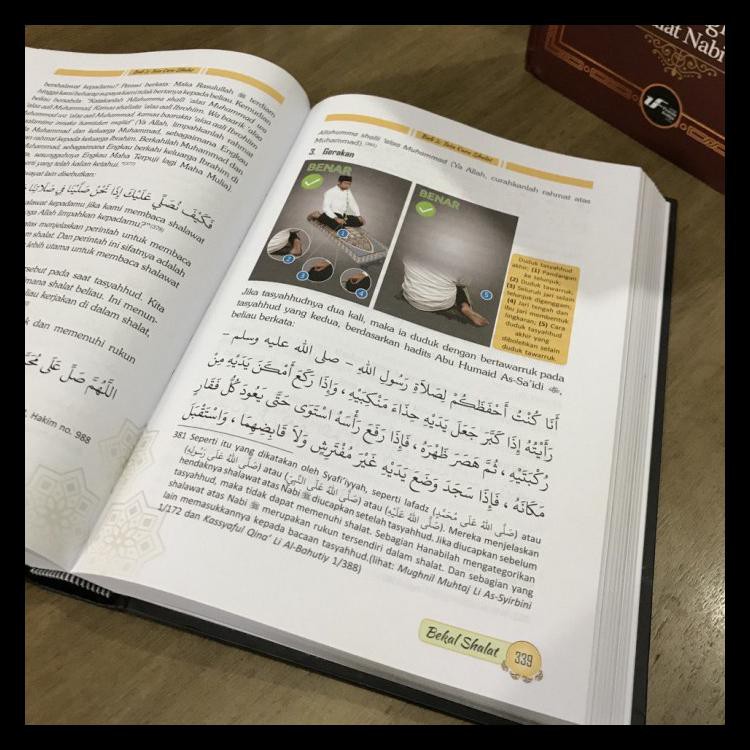 Bab 2: Tata Cara Shalat
bershalawat kepadamu? Perawi berkata: Maka Rasulullah ﷺ terdiam
hingga kami berharap supaya kami tidak bertanya kepada beliau. Kemudian
beliau bersabda: "Katakanlah 'Allahumma shalli 'alaa Muhammad wa
Muhammad dan keluarga Muhammad, sebagaimana Engkau
rahmat kepada keluarga Ibrahim. Berkahilah Muhammad dan
Muhammad, sebagaimana Engkau berkahi keluarga Ibrahim di
sesungguhnya Engkau Maha Terpuji lagi Maha Mulia).
yang telah kalian ketahui."
lain disebutkan:
فَكَيْفَ نُصَلِّي عَلَيْكَ إِذَا نَحْنُ صَلَّيْنَا فِي صَلَاتِنَا
kepadamu jika kami membaca shalawat
Allah limpahkan kepadamu?"
menjelaskan perintah untuk membaca
shalat. Dan perintah ini sifatnya adalah
lebih utama untuk membaca shalawat
sebut pada saat tasyahhud. Kita
mana shalat beliau. Ini menun-
liau kerjakan di dalam shalat,
k dan memenuhi rukun
اللَّهُمَّ صَلِّ عَلَى
Hakim no. 988
Bab 2: Tata Cara Shalat
Allahumma shalli 'alaa Muhammad (Ya Allah, curahkanlah rahmat atas
Muhammad).
3. Gerakan
BENAR
BENAR
1
2
3
4
5
Duduk tasyahhud
akhir: (1) Pandangan
ke telunjuk;
(2) Duduk tawarruk;
(3) Seluruh jari selain
telunjuk digenggam;
(4) Jari tengah dan
ibu jari membentuk
lingkaran; (5) Cara
duduk tasyahhud
akhir yang
dibolehkan selain
duduk tawarruk
Jika tasyahhudnya dua kali, maka ia duduk dengan bertawarruk pada
tasyahhud yang kedua, berdasarkan hadits Abu Humaid As-Sa'idi ﷺ,
beliau berkata:
أَنَا كُنْتُ أَحْفَظَكُمْ لِصَلَاةِ رَسُولِ اللهِ – صلى الله عليه وسلم –
رَأَيْتُهُ إِذَا كَبَّرَ جَعَلَ يَدَيْهِ حِذَاءَ مَنْكِبَيْهِ ، وَإِذَا رَكَعَ أَمْكَنَ يَدَيْهِ مِنْ
رُكْبَتَيْهِ ، ثُمَّ هَصَرَ ظَهْرَهُ ، فَإِذَا رَفَعَ رَأْسَهُ اسْتَوَى حَتَّى يَعُودَ كُلُّ فَقَارٍ
مَكَانَهُ ، فَإِذَا سَجَدَ وَضَعَ يَدَيْهِ غَيْرَ مُفْتَرِشٍ وَلاَ قَابِضِهِمَا ، وَاسْتَقْبَلَ
381 Seperti itu yang dikatakan oleh Syafi'iyyah, seperti lafadz (صَلَّى اللهُ عَلَى مُحَمَّدٍ) atau (صَلَّى اللهُ عَلَى رَسُولِهِ) atau (صَلَّى اللهُ عَلَى النَّبِيِّ) atau (صَلَّى اللهُ عَلَيْهِ). Mereka menjelaskan
hendaknya shalawat atas Nabi ﷺ diucapkan setelah tasyahhud. Jika diucapkan sebelum
tasyahhud, maka tidak dapat memenuhi shalat. Sebagian Hanabilah mengategorikan
shalawat atas Nabi ﷺ merupakan rukun tersendiri dalam shalat. Dan sebagian yang
lain memasukkannya kepada bacaan tasyahhud.(lihat: Mughnil Muhtaj Li As-Syirbini
1/172 dan Kossyaful Qina' Li Al-Bohutiy 1/388)
Bekal Shalat
339
at Nabi